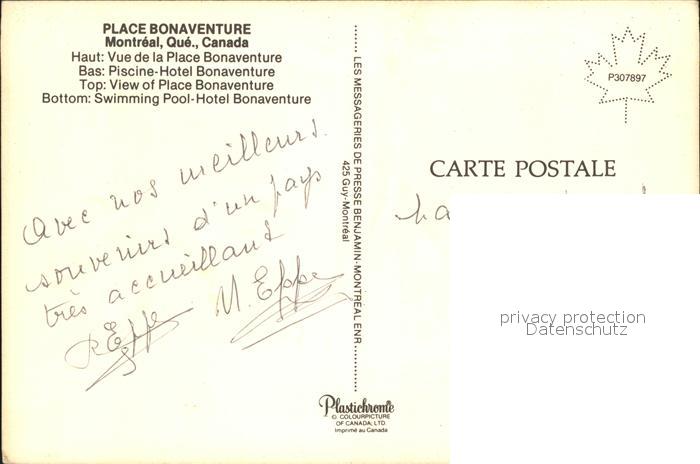 PLACE BONAVENTURE
Montréal, Qué., Canada
Haut: Vue de la Place Bonaventure
Bas: Piscine-Hotel Bonaventure
Top: View of Place Bonaventure
Bottom: Swimming Pool-Hotel Bonaventure
Avec nos meilleurs
souvenirs d'un pays
très accueillant
REppe M. Eppe
LES MESSAGERIES DE PRESSE BENJAMIN-MONTREAL ENR.
425 Guy-Montréal
P307897
CARTE POSTALE
privacy protection
Datenschutz
Plastichrome
© COLOURPICTURE
OF CANADA, LTD.
Imprimé au Canada